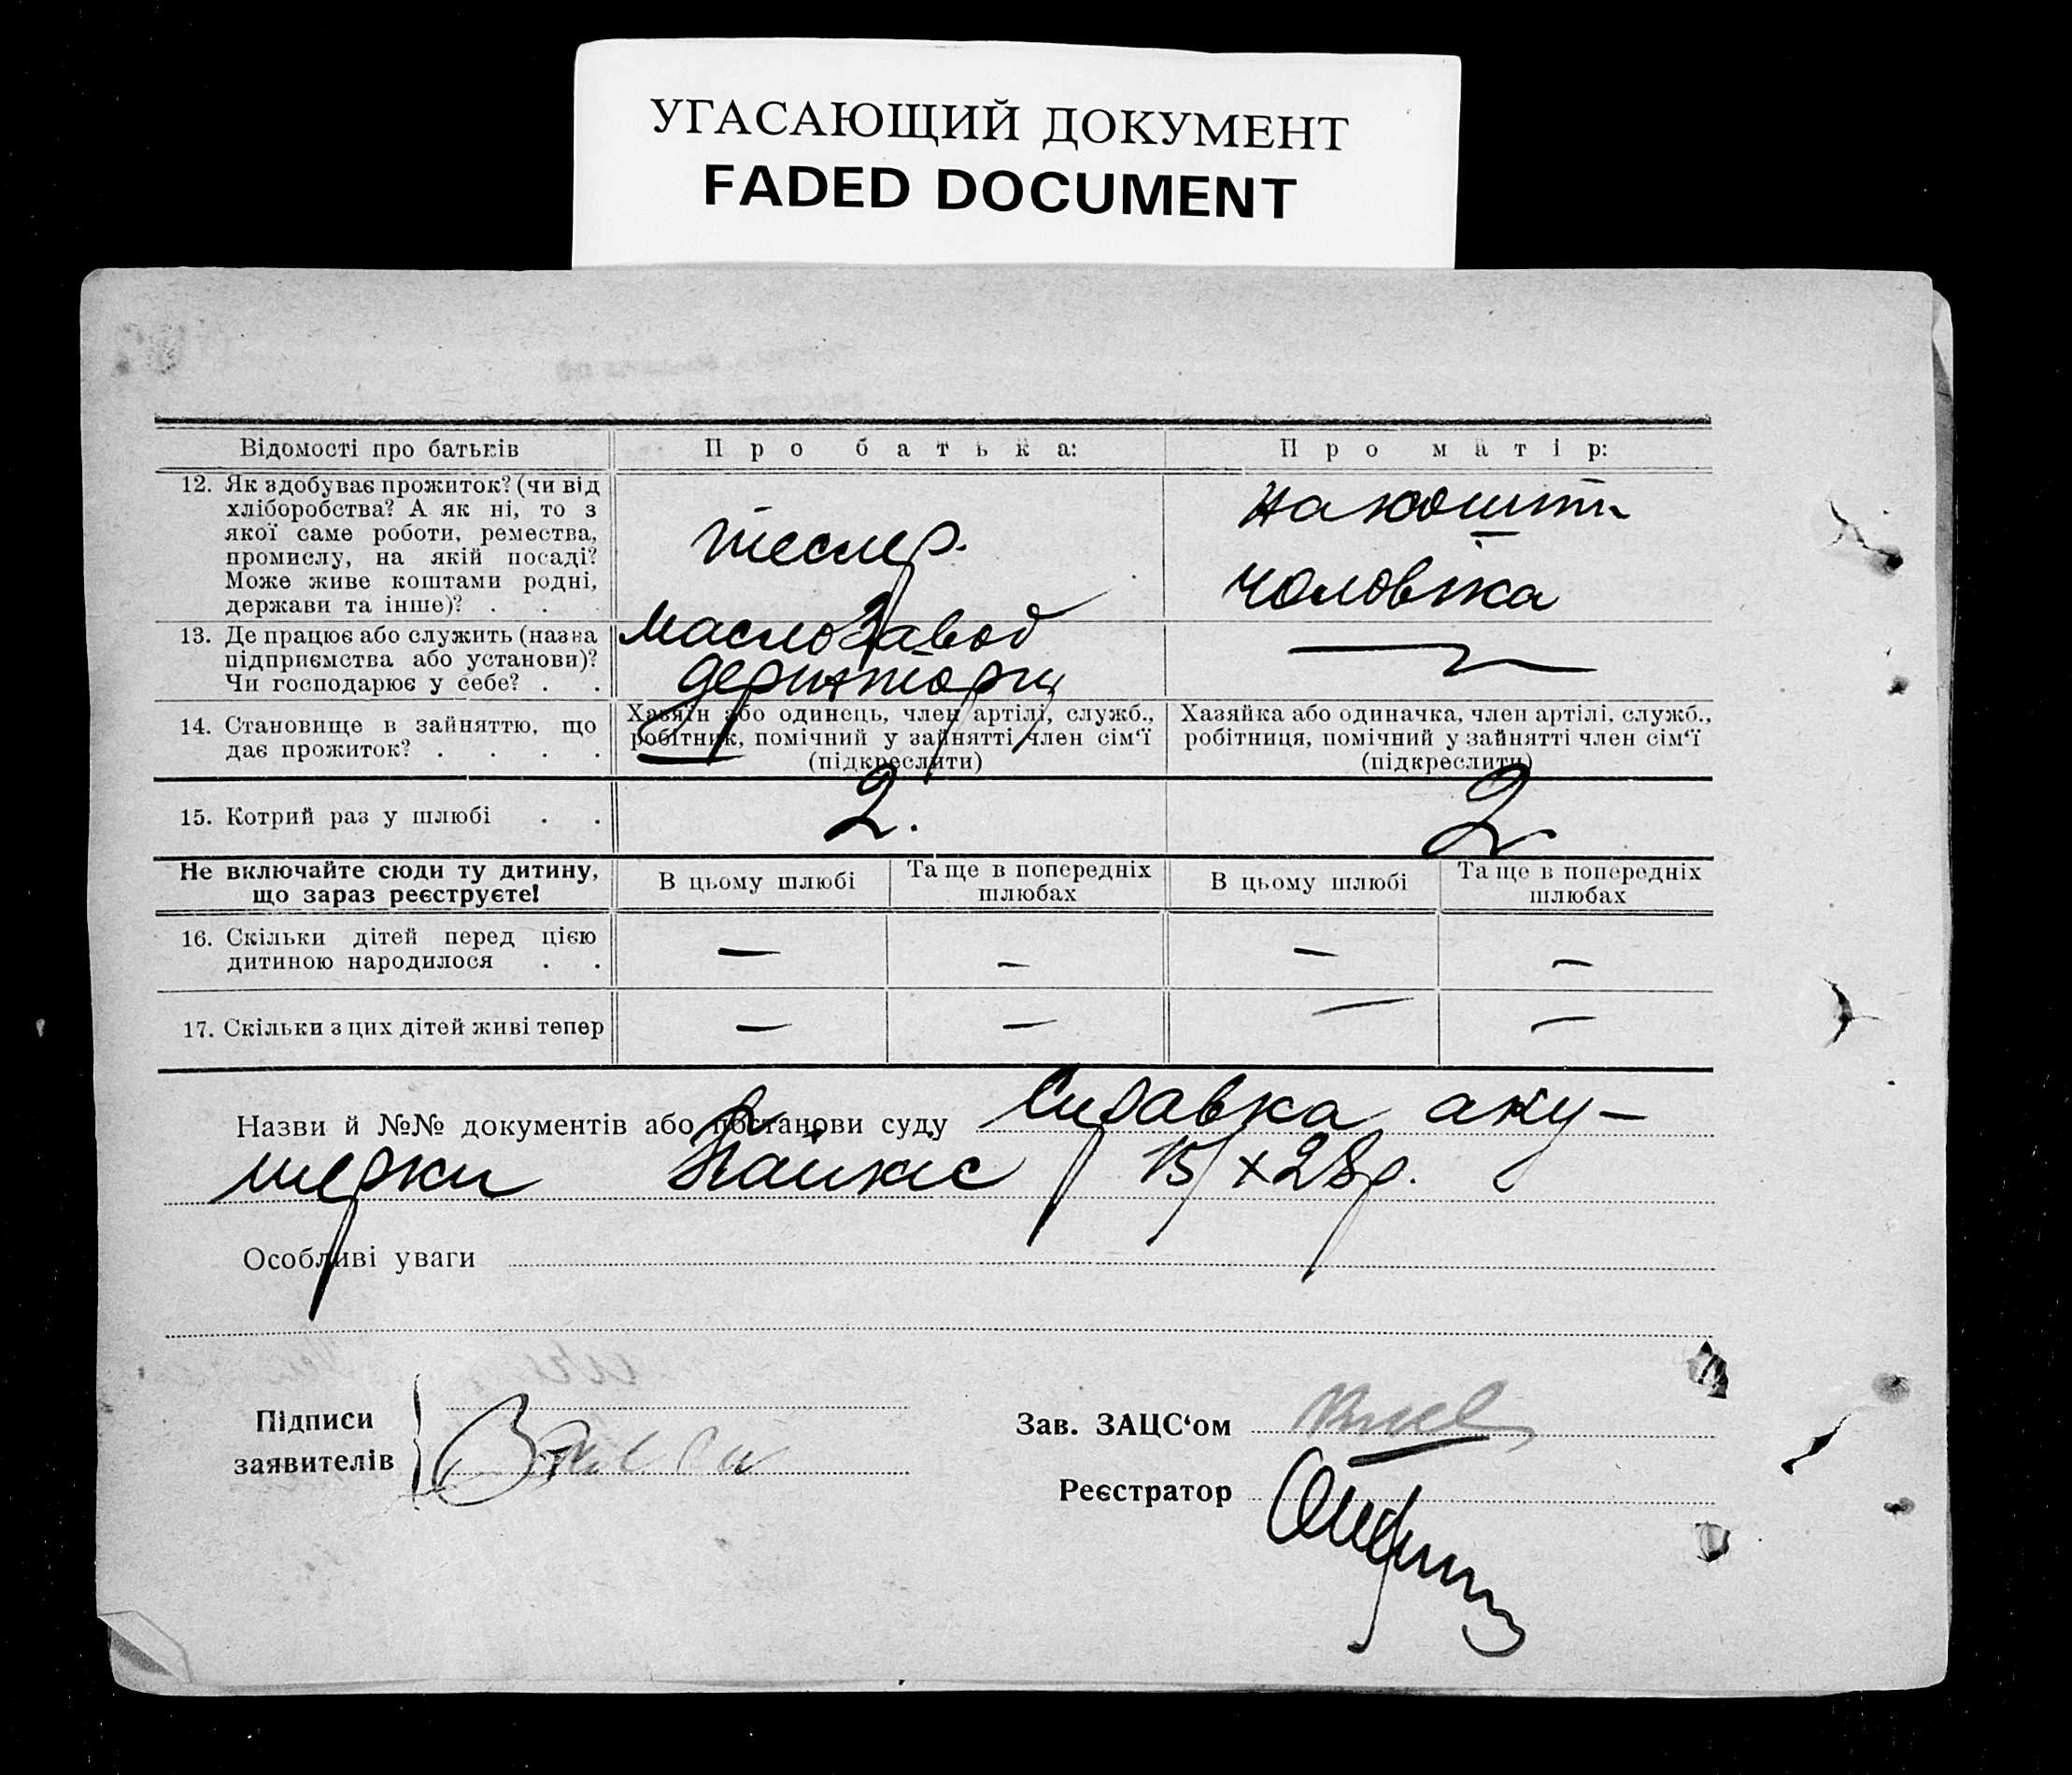 УГАСАЮЩИЙ ДОКУМЕНТ
FADED DOCUMENT
Відомості про батьків
Про батька:
Про матір:
12. Як здобуває прожиток? (чи від
хліборобства? А як ні, то з
якої саме роботи, ремества,
промислу, на якій посаді?
Може живе коштами родні,
держави та інше)? . .
тесляр.
на кошти
чоловіка
13. Де працює або служить (назва
підприємства або установи)?
Чи господарює у себе? . .
Маслозавод
14. Становище в зайняттю, що
дає прожиток? . . . .
Хазяїн або одинець, член артілі, служб.,
робітник, помічний у зайнятті член сім‘ї
(підкреслити)
Хазяйка або одиначка, член артілі, служб.,
робітниця, помічний у зайнятті член сім‘ї
(підкреслити)
15. Котрий раз у шлюбі . .
2.
2
Не включайте сюди ту дитину,
що зараз реєструєте!
В цьому шлюбі
Та ще в попередніх
шлюбах
В цьому шлюбі
Та ще в попередніх
шлюбах
16. Скільки дітей перед цією
дитиною народилося . .
— — — —
17. Скільки з цих дітей живі тепер
— — — —
Назви й №№ документів або постанови суду Справка аку-
шерки 15/X 28р.
Особливі уваги
Підписи
заявителів
Зав. ЗАЦС‘ом
Реєстратор